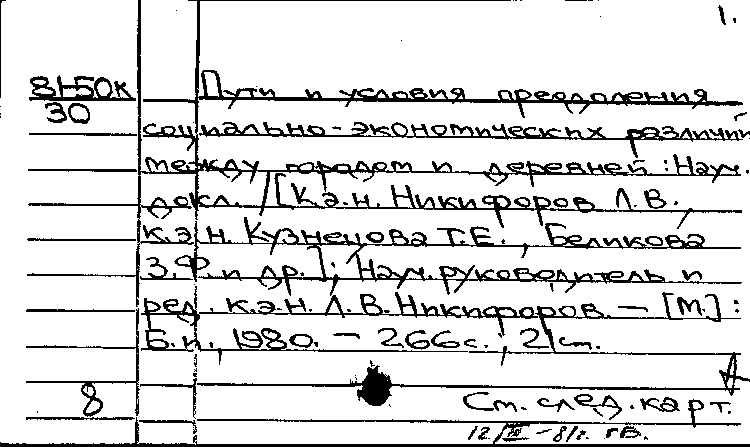 1.
81-50к
30
Пути и условия преодоления
социально-экономических различий
между городом и деревней : Науч.
докл. / [К.э.н. Никифоров Л.В.,
к.э.н. Кузнецова Т.Е., Беликова
З.Ф. и др.]; Науч. руководитель и
ред. к.э.н. Л.В. Никифоров. — [М.] :
Б.и., 1980. — 266 с.; 21 см.
8
См. след. карт.
12/III-81г.